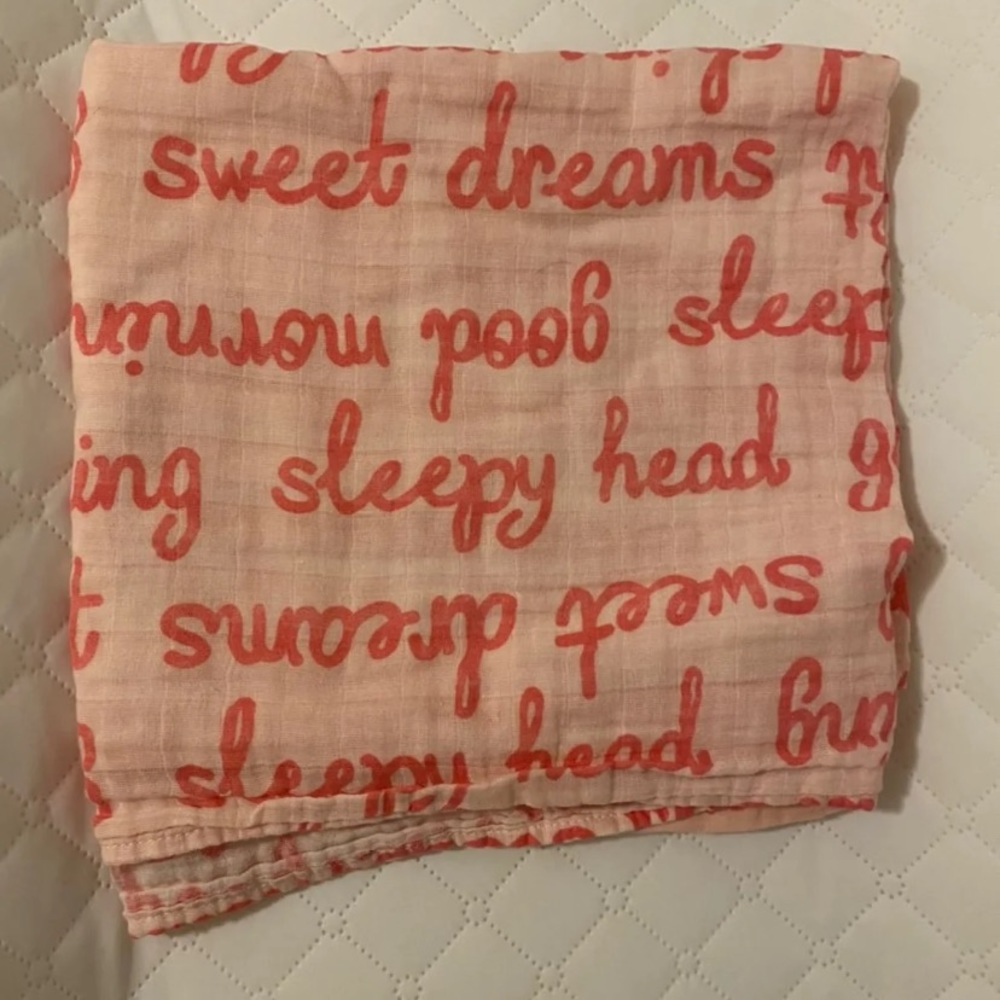 sweet dreams
good mornin sleep
ing sleepy head g
sweet dreams
sleepy head ng